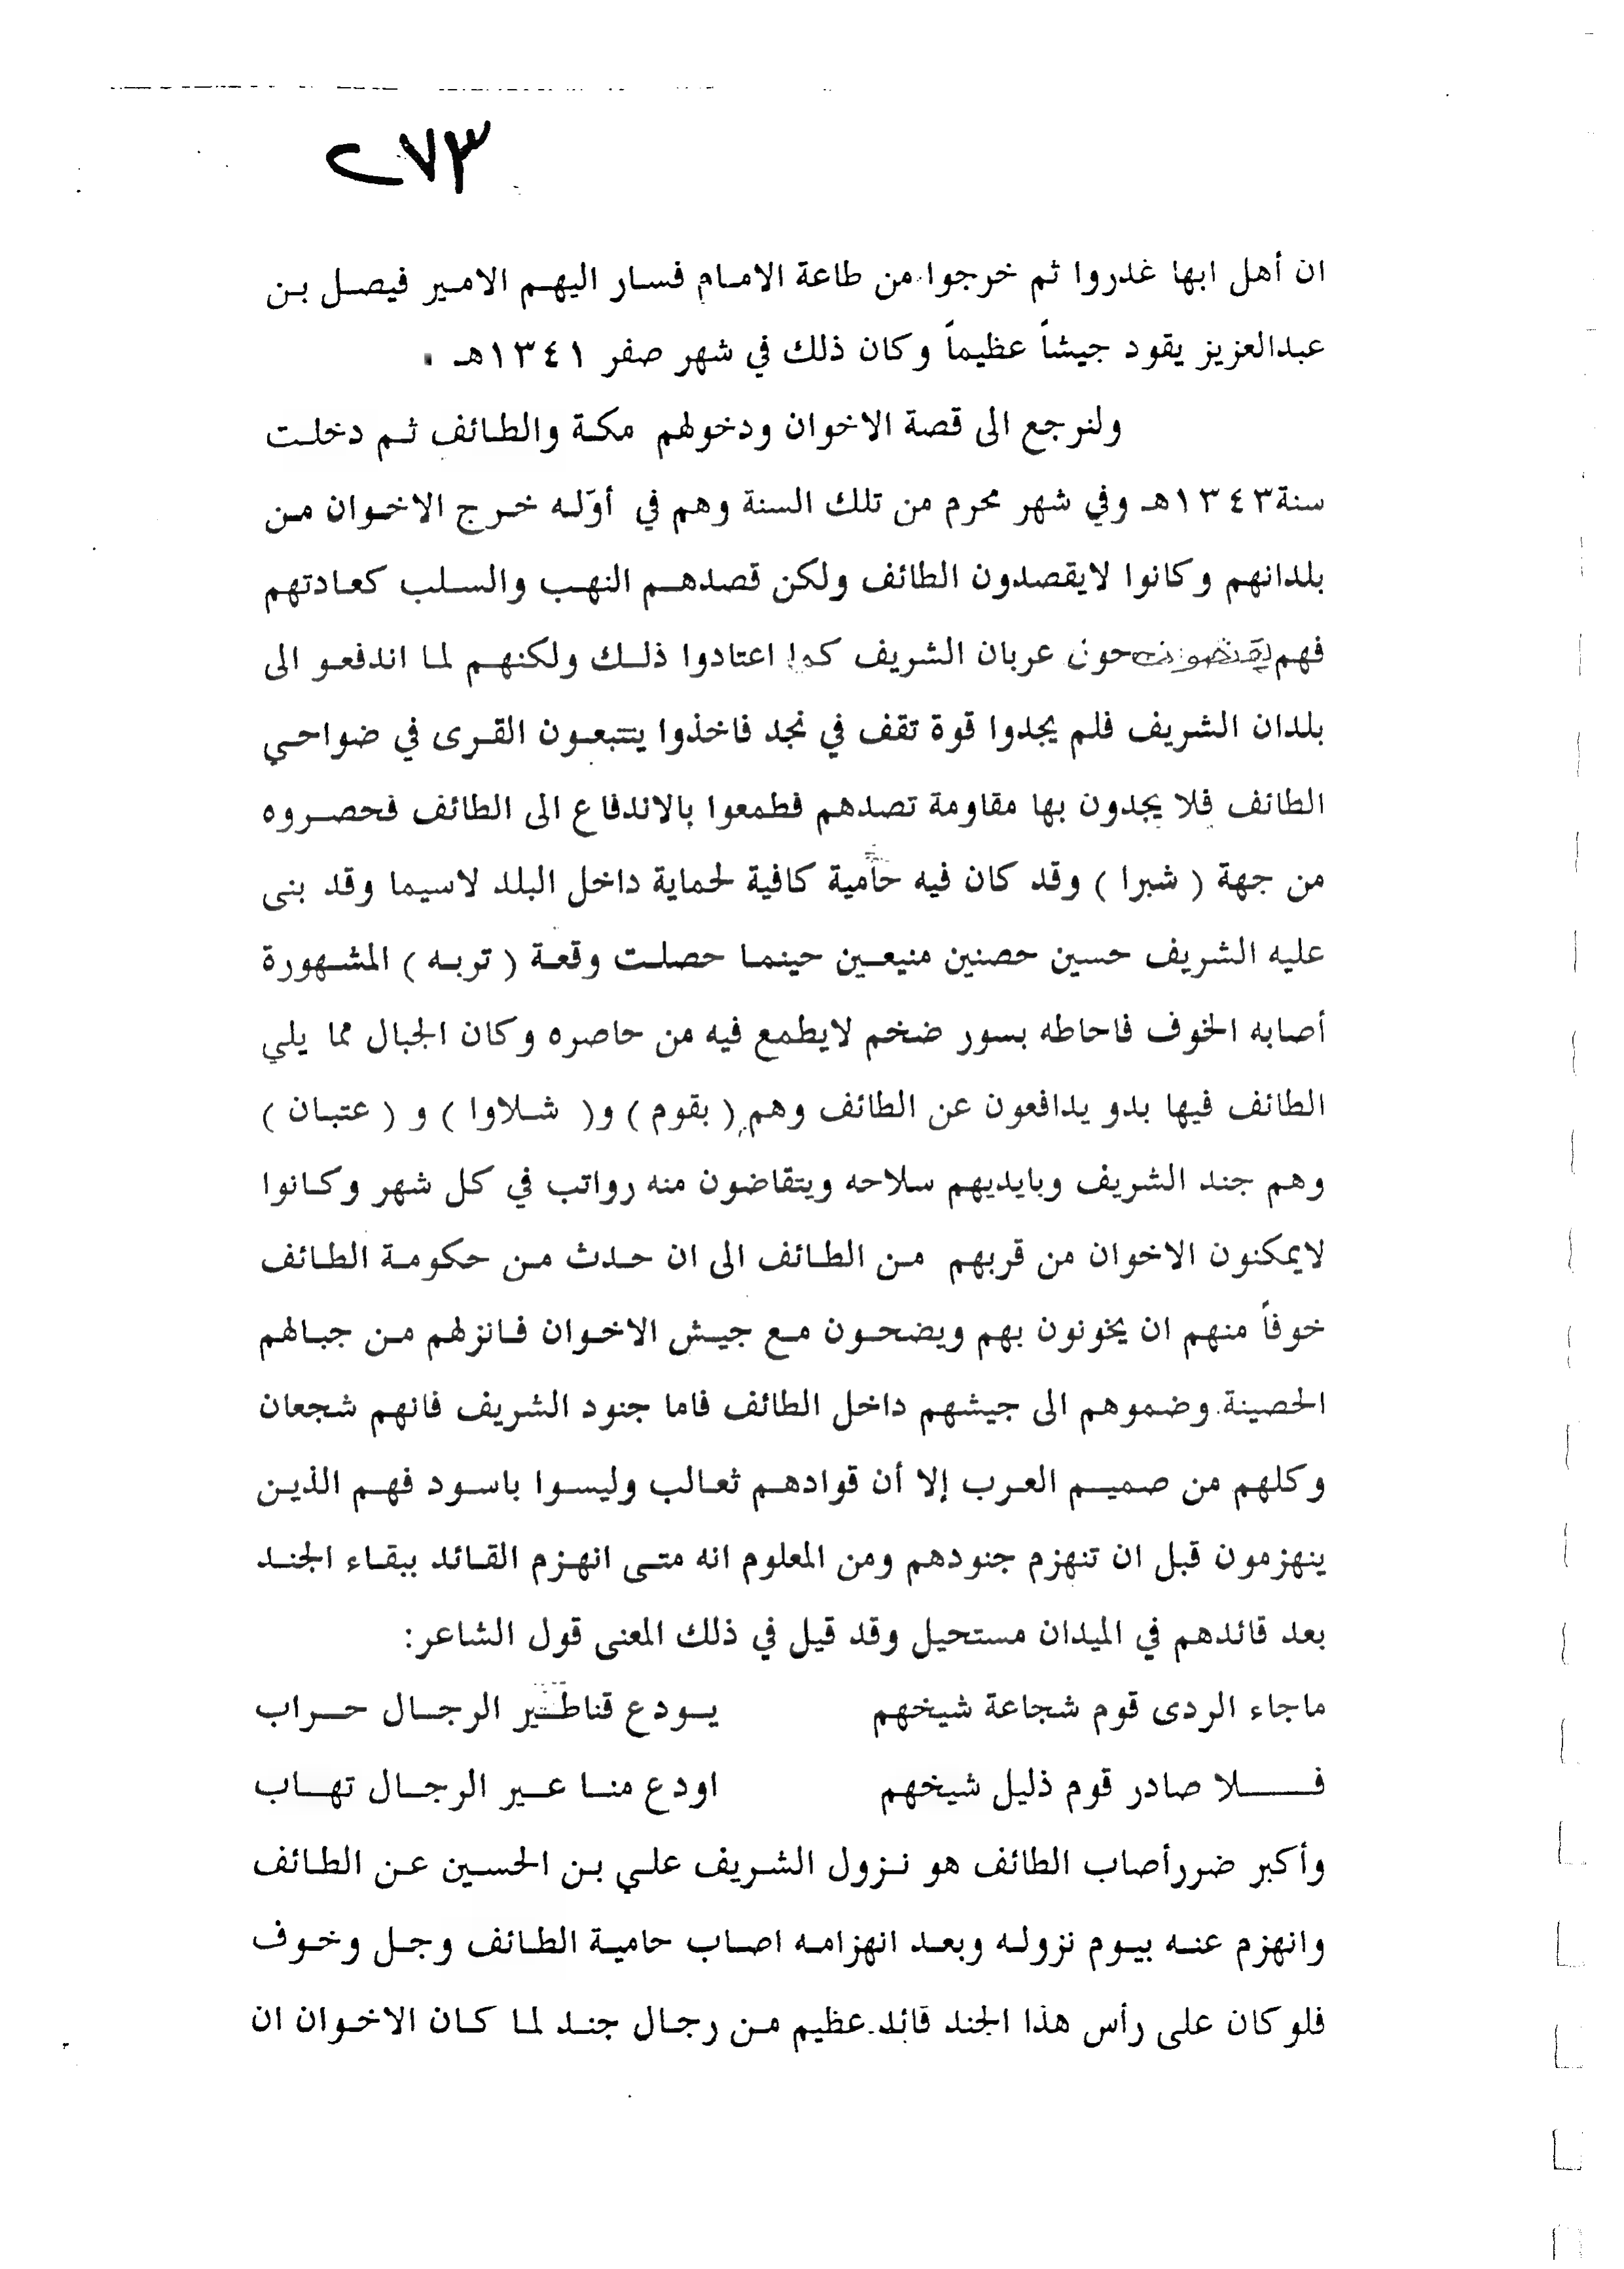 ٢٧٣
ان أهل ابها غدروا ثم خرجوا من طاعة الامام فسار اليهم الامير فيصل بن
عبدالعزيز يقود جيشاً عظيماً وكان ذلك في شهر صفر ١٣٤١هـ .
ولنرجع الى قصة الاخوان ودخولهم مكة والطائف ثم دخلت
سنة١٣٤٣هـ وفي شهر محرم من تلك السنة وهم في أوّله خرج الاخوان من
بلدانهم وكانوا لايقصدون الطائف ولكن قصدهم النهب والسلب كعادتهم
فهم عربان الشريف كما اعتادوا ذلك ولكنهم لما اندفعو الى
بلدان الشريف فلم يجدوا قوة تقف في نجد فاخذوا يتتبعون القرى في ضواحي
الطائف فلا يجدون بها مقاومة تصدهم فطمعوا بالاندفاع الى الطائف فحصروه
من جهة ( شبرا ) وقد كان فيه حامية كافية لحماية داخل البلد لاسيما وقد بنى
عليه الشريف حسين حصنين منيعين حينما حصلت وقعة ( تربه ) المشهورة
أصابه الخوف فاحاطه بسور ضخم لايطمع فيه من حاصره وكان الجبال مما يلي
الطائف فيها بدو يدافعون عن الطائف وهم ( بقوم ) و( شلاوا ) و ( عتبان )
وهم جند الشريف وبايديهم سلاحه ويتقاضون منه رواتب في كل شهر وكانوا
لايمكنون الاخوان من قربهم من الطائف الى ان حدث من حكومة الطائف
خوفاً منهم ان يخونون بهم ويضحون مع جيش الاخوان فانزلهم من جبالهم
الحصينة وضموهم الى جيشهم داخل الطائف فاما جنود الشريف فانهم شجعان
وكلهم من صميم العرب إلا أن قوادهم ثعالب وليسوا باسود فهم الذين
ينهزمون قبل ان تنهزم جنودهم ومن المعلوم انه متى انهزم القائد ببقاء الجند
بعد قائدهم في الميدان مستحيل وقد قيل في ذلك المعنى قول الشاعر:
ماجاء الردى قوم شجاعة شيخهم يودع قناطير الرجال حراب
فلا صادر قوم ذليل شيخهم اودع منا عير الرجال تهاب
وأكبر ضررأصاب الطائف هو نزول الشريف علي بن الحسين عن الطائف
وانهزم عنه بيوم نزوله وبعد انهزامه اصاب حامية الطائف وجل وخوف
فلو كان على رأس هذا الجند قائد عظيم من رجال جند لما كان الاخوان ان